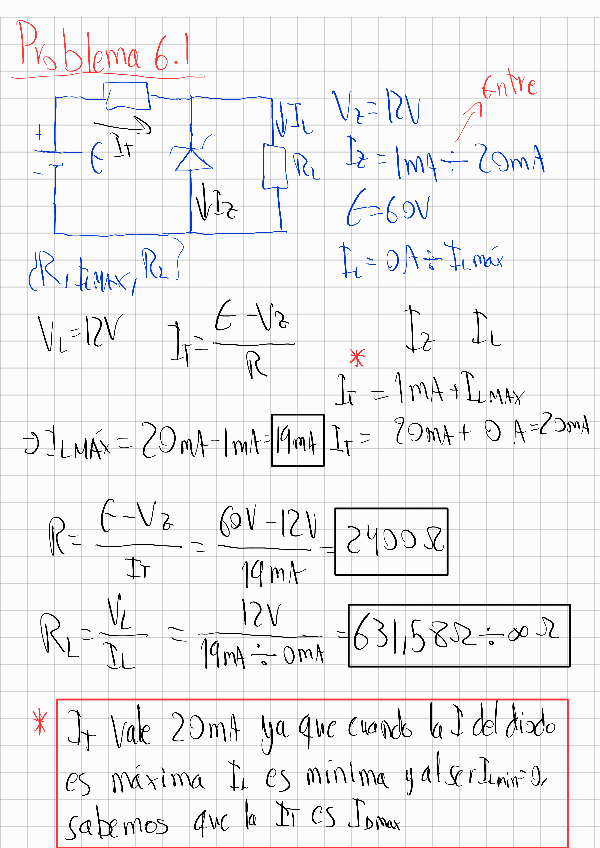 Problema 6.1
Entre
+
-
E
I_T
↓I_L
R_L
↓I_Z
V_Z=12V
I_Z=1mA÷20mA
E=60V
I_L=0A÷I_Lmáx
¿R, I_LMAX, R_L?
V_L=12V
I_T=(E-V_Z)/R
I_Z I_L
*
I_T=1mA+I_LMAX
⇒I_LMÁX=20mA-1mA=19mA
I_T=20mA+0A=20mA
R=(E-V_Z)/I_T=(60V-12V)/19mA=2400Ω
R_L=V_L/I_L=12V/(19mA÷0mA)=631,58Ω÷∞Ω
* I_T Vale 20mA ya que cuando la I del diodo
es máxima I_L es mínima y al ser I_Lmin=0,
sabemos que la I_T es I_Dmax